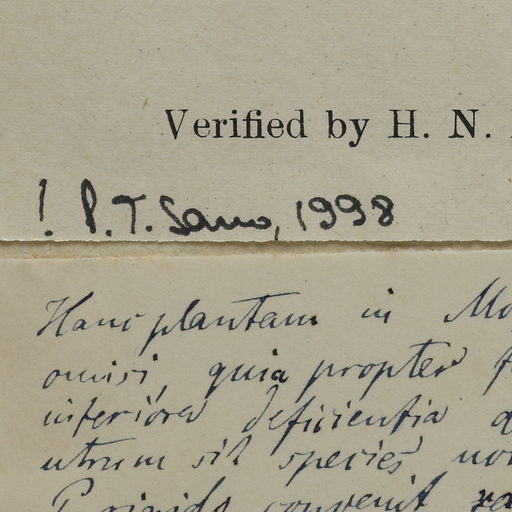 Verified by H. N.
! P. T. Sano, 1998
Hanc plantam in
omisi, quia propter
inferiora deficientia
utrum sit species
convenit